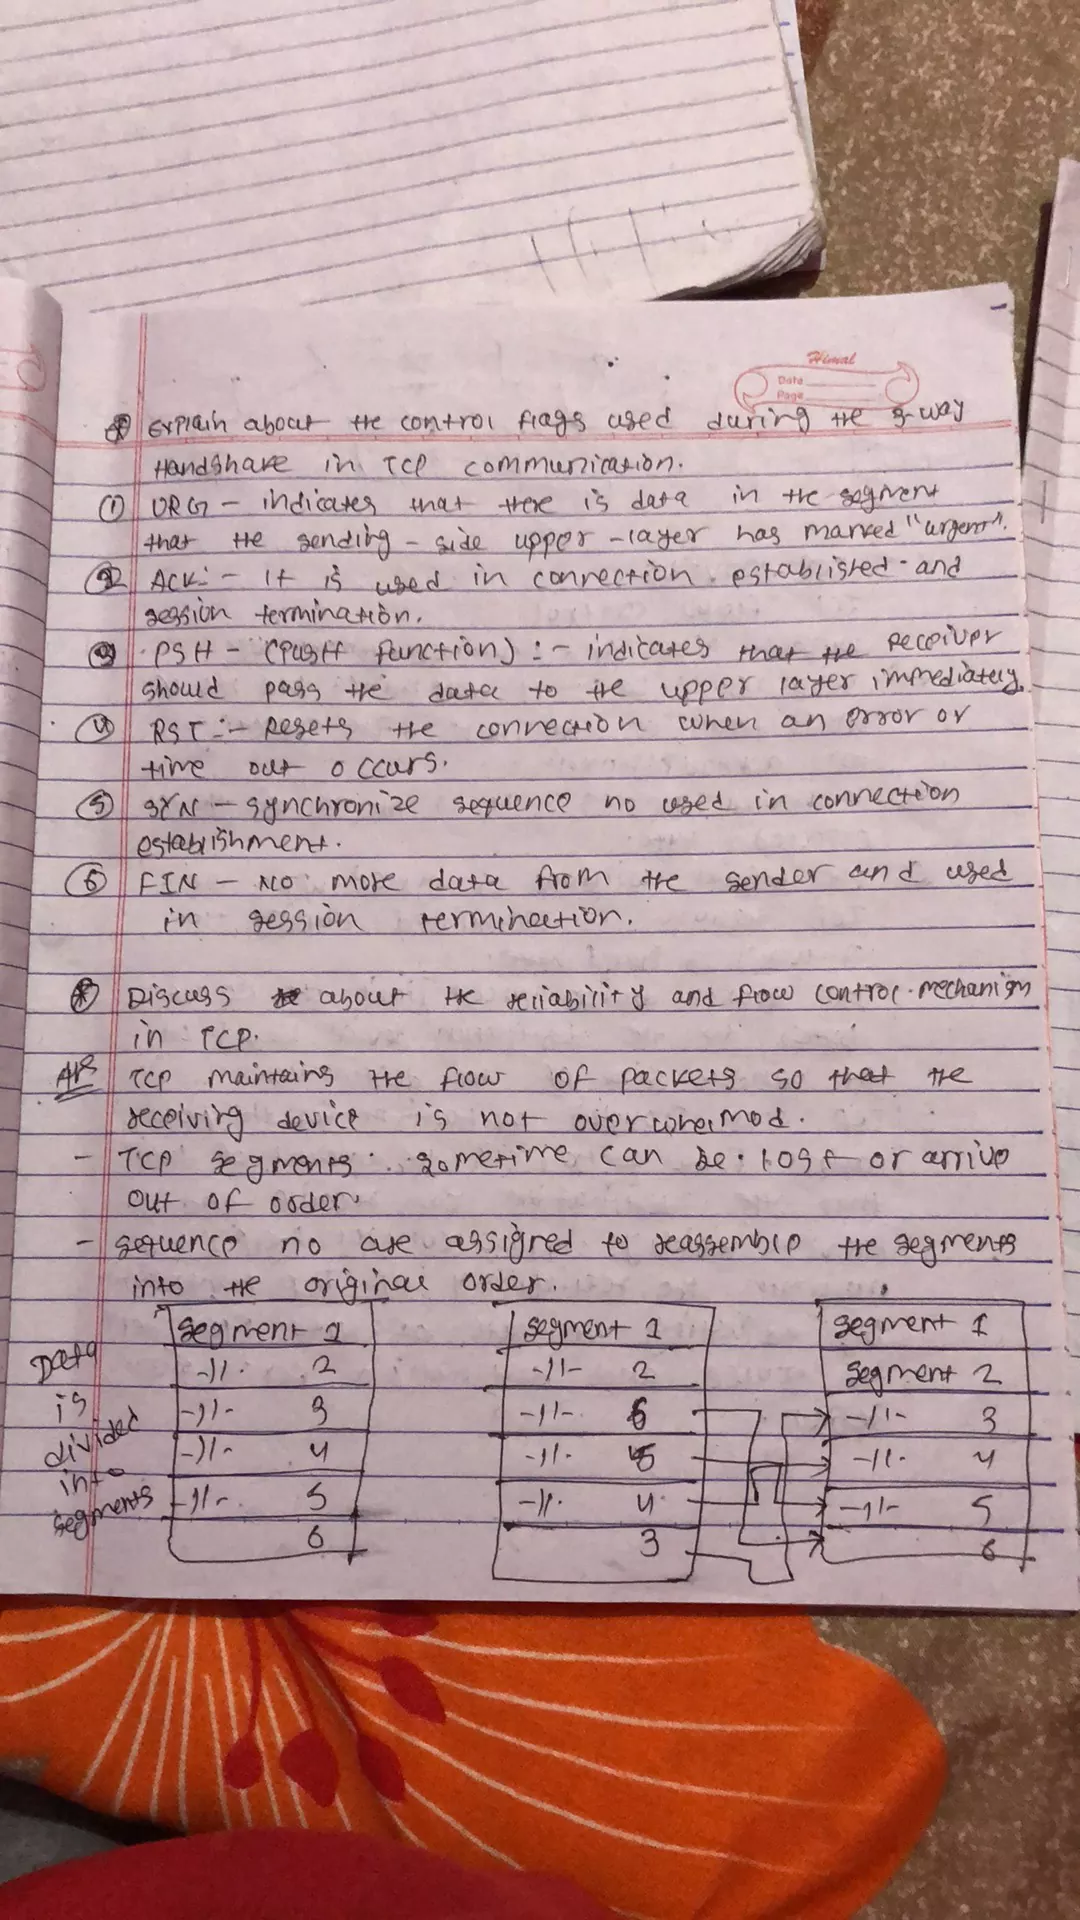 Himal
Date
Page
Explain about the control flags used during the 3-way
Handshake in TCP communication.
① URG - indicates that there is data in the segment
that the sending-side upper-layer has marked "urgent".
② ACK:- It is used in connection established and
session termination.
③ PSH - (PUSH function) :- indicates that the receiver
should pass the data to the upper layer immediately.
④ RST :- Resets the connection when an error or
time out occurs.
⑤ SYN - synchronize sequence no used in connection
establishment.
⑥ FIN - No more data from the sender and used
in session termination.
Discuss about the reliability and flow control mechanism
in TCP.
Ans TCP maintains the flow of packets so that the
receiving device is not overwhelmed.
- TCP segments sometime can be lost or arrive
out of order.
- sequence no are assigned to reassemble the segments
into the original order.
Data is divided into segments
segment 1
-11- 2
-11- 3
-11- 4
-11- 5
6
segment 1
-11- 2
-11- 6
-11- 5
-11- 4
3
segment 1
segment 2
-11- 3
-11- 4
-11- 5
6